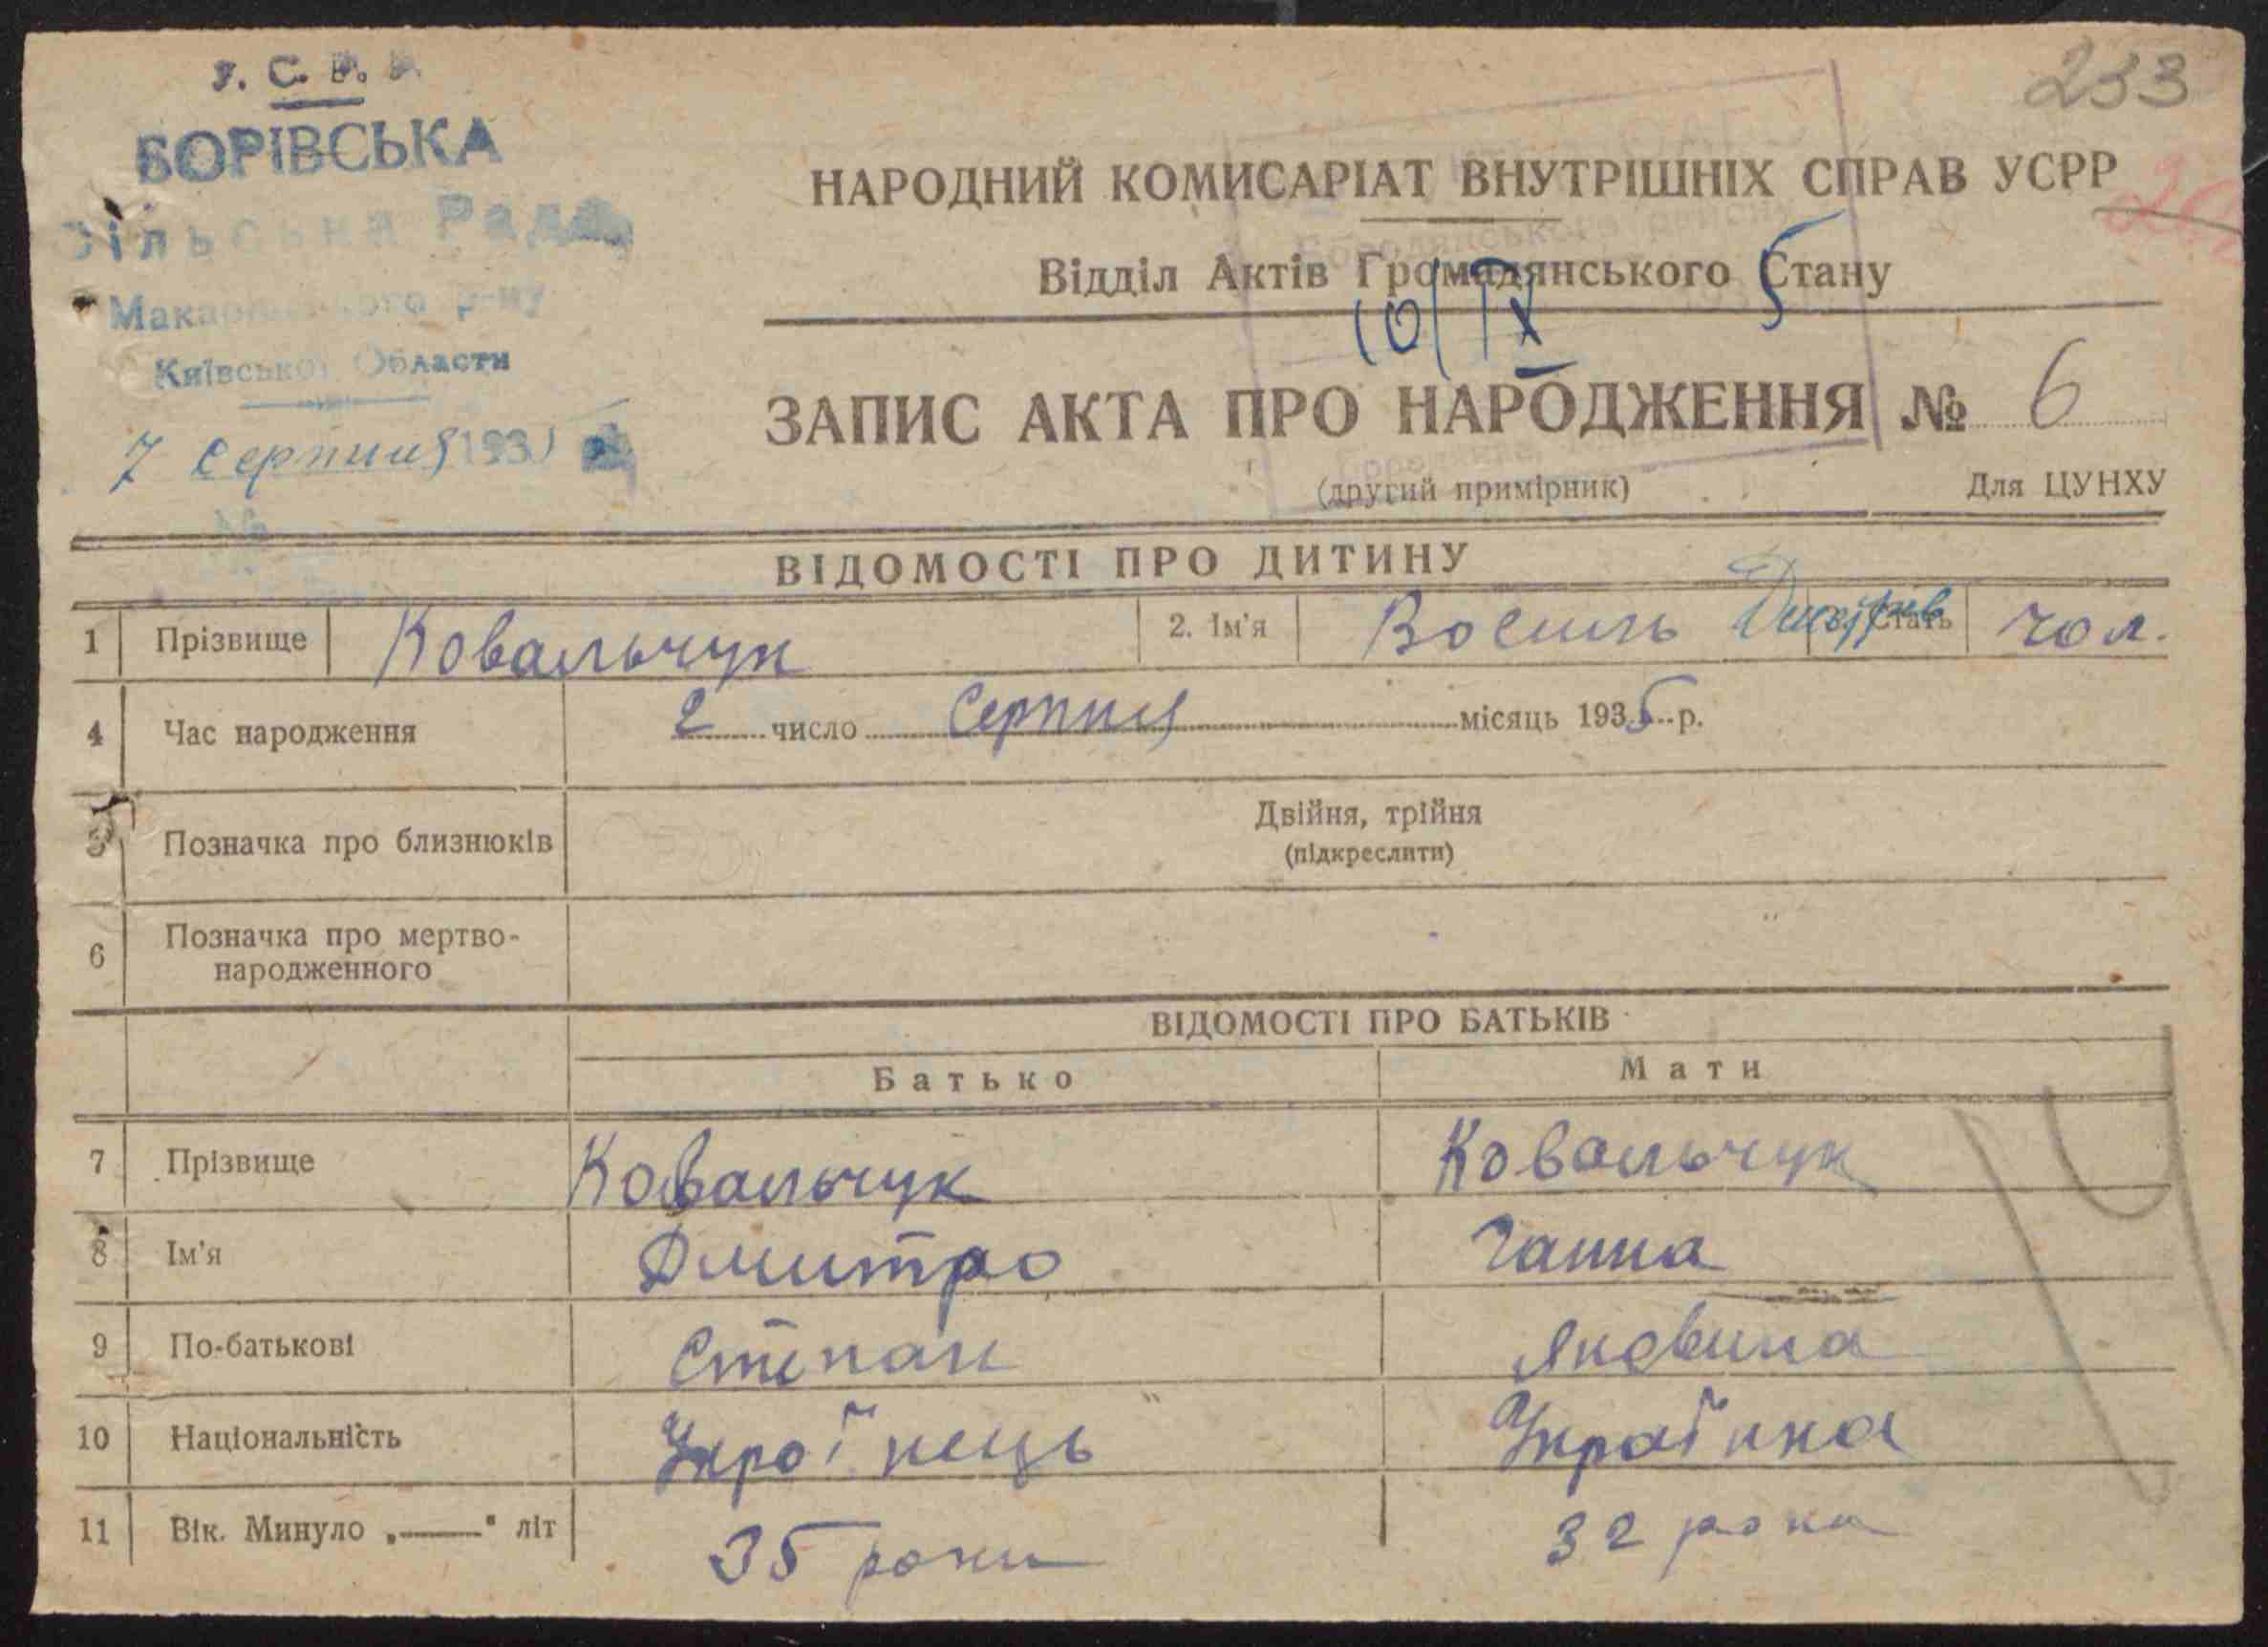 У. С. Р. Р.
БОРІВСЬКА
Сільська Рада
Макарівського р-ну
Київської Области
7 Серпня 193
233
НАРОДНИЙ КОМИСАРІАТ ВНУТРІШНІХ СПРАВ УСРР
Відділ Актів Громадянського Стану
10/IX 5
ЗАПИС АКТА ПРО НАРОДЖЕННЯ № 6
(другий примірник) Для ЦУНХУ
ВІДОМОСТІ ПРО ДИТИНУ
1 Прізвище Ковальчук 2. Ім'я Восиль Стать чол.
4 Час народження 2 число Серпня місяць 1935 р.
5 Позначка про близнюків Двійня, трійня
(підкреслити)
6 Позначка про мертво-
народженного
ВІДОМОСТІ ПРО БАТЬКІВ
Батько Мати
7 Прізвище Ковальчук Ковальчук
8 Ім'я Дмитро Ганна
9 По-батькові Степан Яковина
10 Національність Українець Українка
11 Вік. Минуло „——" літ 35 роки 32 роки